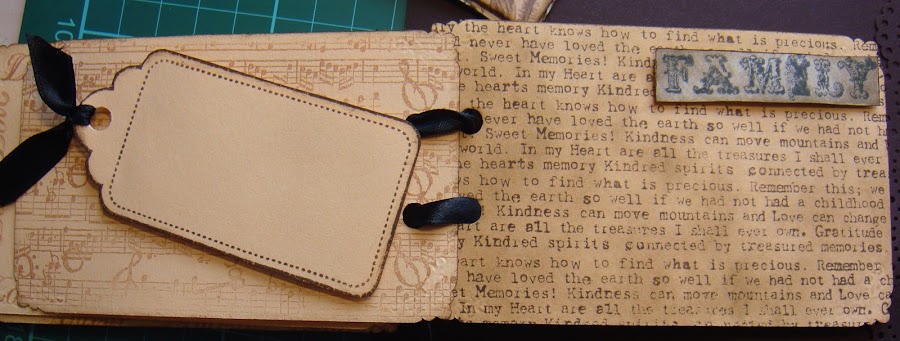 ly the heart knows how to find what is precious. Rem
I never have loved the earth
Sweet Memories! Kind
FAMILY
world. In my Heart are a
hearts memory Kindred
the heart knows how to find what is precious. Rem
ever have loved the earth so well if we had not h
Sweet Memories! Kindness can move mountains and
world. In my Heart are all the treasures I shall ever
he hearts memory Kindred spirits connected by trea
s how to find what is precious. Remember this; we
ved the earth so well if we had not had a childhood
Kindness can move mountains and Love can change
art are all the treasures I shall ever own. Gratitude
y Kindred spirits connected by treasured memories.
eart knows how to find what is precious. Remember
have loved the earth so well if we had not had a c
et Memories! Kindness can move mountains and Love ca
In my Heart are all the treasures I shall ever own. G
memory Kindred